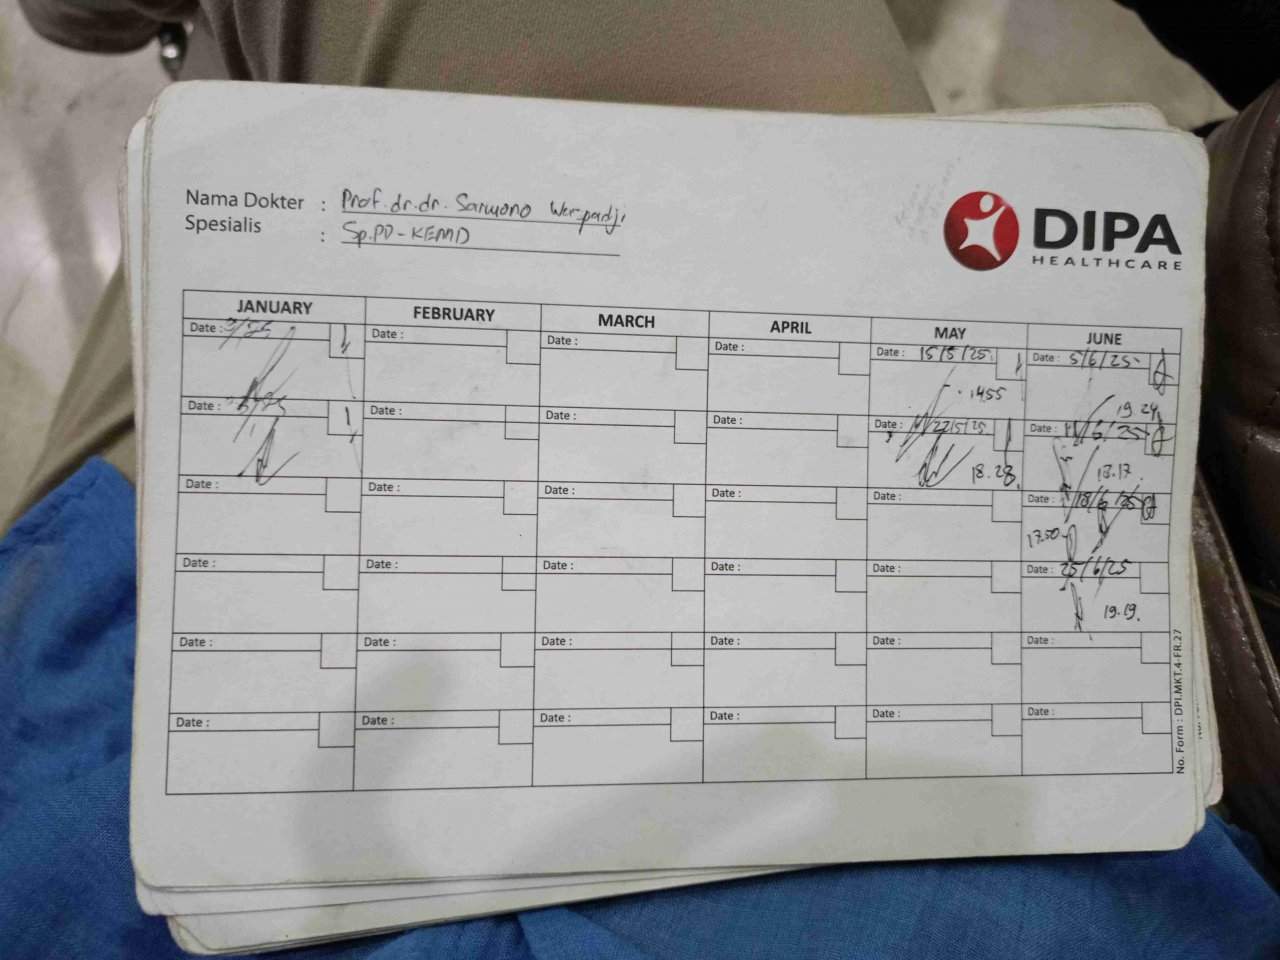 Nama Dokter : Prof. dr. dr. Sarwono
Spesialis : Sp.PD-KEMD
DIPA
HEALTHCARE
JANUARY FEBRUARY MARCH APRIL MAY JUNE
Date : Date : Date : Date : Date : 15/5/25 Date : 5/6/25
14.55 19.24
Date : Date : Date : Date : Date : 22/5/25 Date : /6/25
18.28 18.17
Date : Date : Date : Date : Date : Date : 18/6/25
17.50
Date : Date : Date : Date : Date : Date : 25/6/25
19.19.
Date : Date : Date : Date : Date : Date :
Date : Date : Date : Date : Date : Date :
No. Form : DPI.MKT.4-FR.27